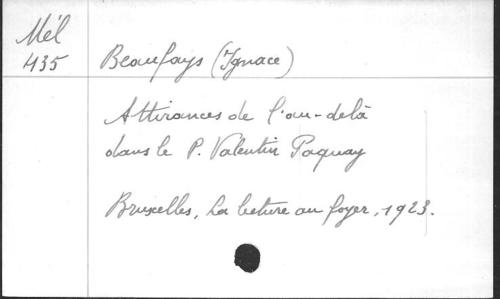 Mél
435
Beaufays (Ignace)
Attirances de l'au-delà
dans le P. Valentin Paquay
Bruxelles, La lecture au foyer, 1923.